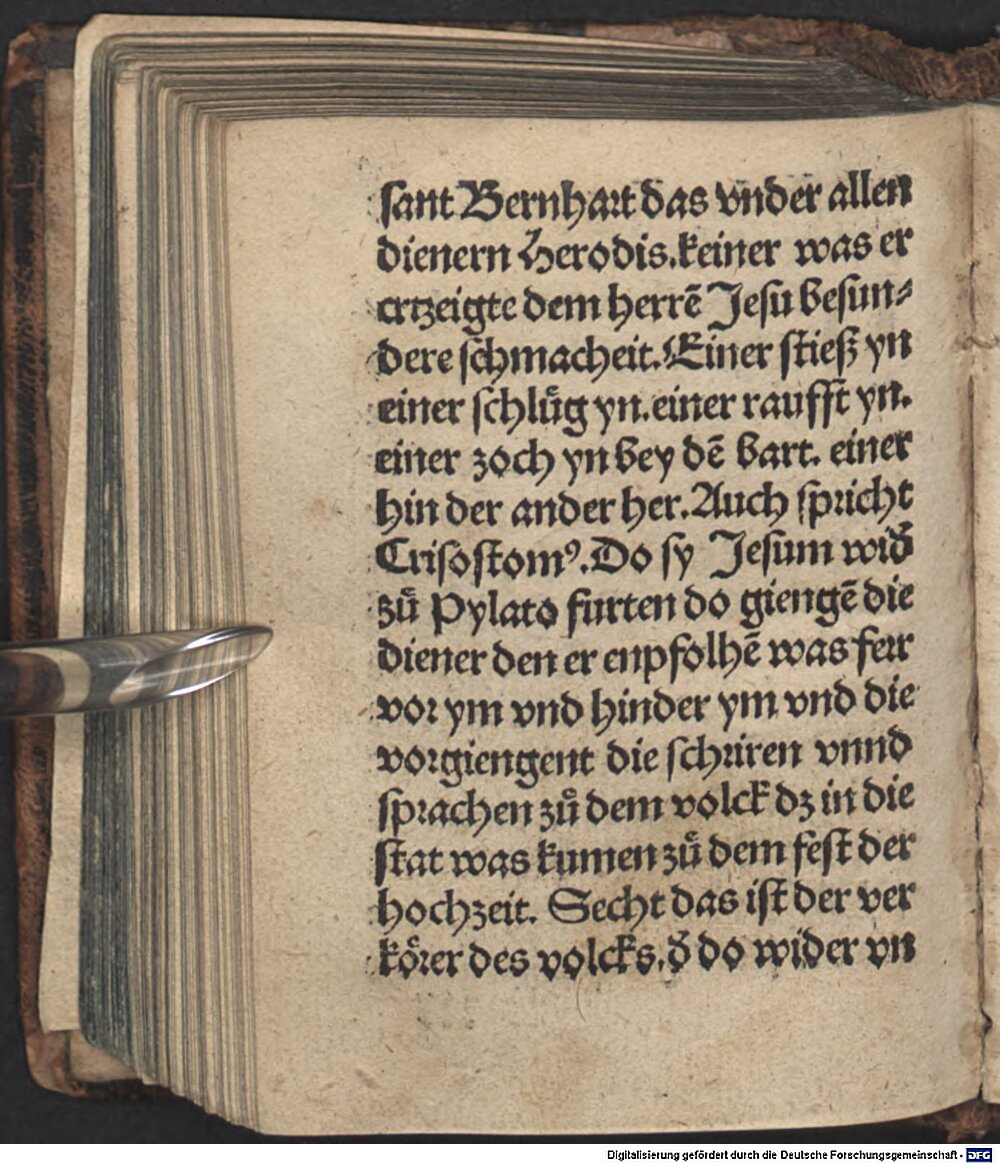 sant Bernhart das vnder allen
dienern Herodis.keiner was er
ertzeigte dem herrē Jesu besun⸗
dere schmacheit.Einer stieß yn
einer schlůg yn.einer raufft yn.
einer zoch yn bey dē bart. einer
hin der ander her.Auch spricht
Crisostomꝰ.Do sy Jesum wid̕
zů Pylato furten do giengē die
diener den er enpfolhē was ferr
vor ym vnd hinder ym vnd die
vorgiengent die schriren vnnd
sprachen zů dem volck dz in die
stat was kumen zů dem fest der
hochzeit. Secht das ist der ver
koͤrer des volcks.d̕ do wider vn
Digitalisierung gefördert durch die Deutsche Forschungsgemeinschaft - DFG